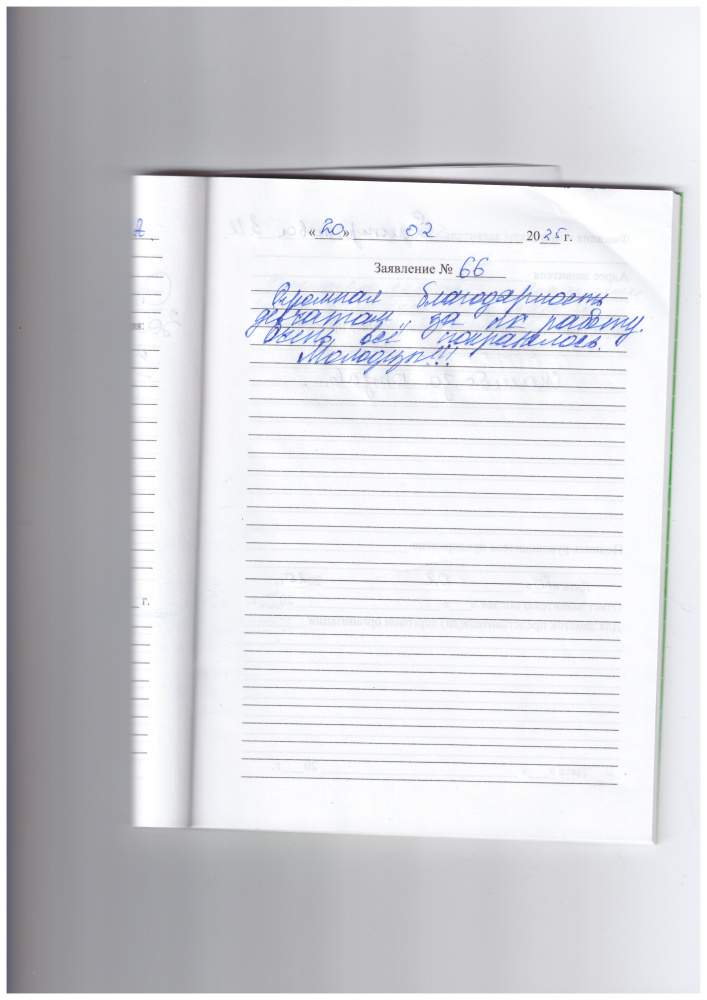 «20» 02 2025 г.
Заявление № 66
Огромная благодарность
девчатам за их работу.
Очень всё понравилось.
Молодцы!!!
г.